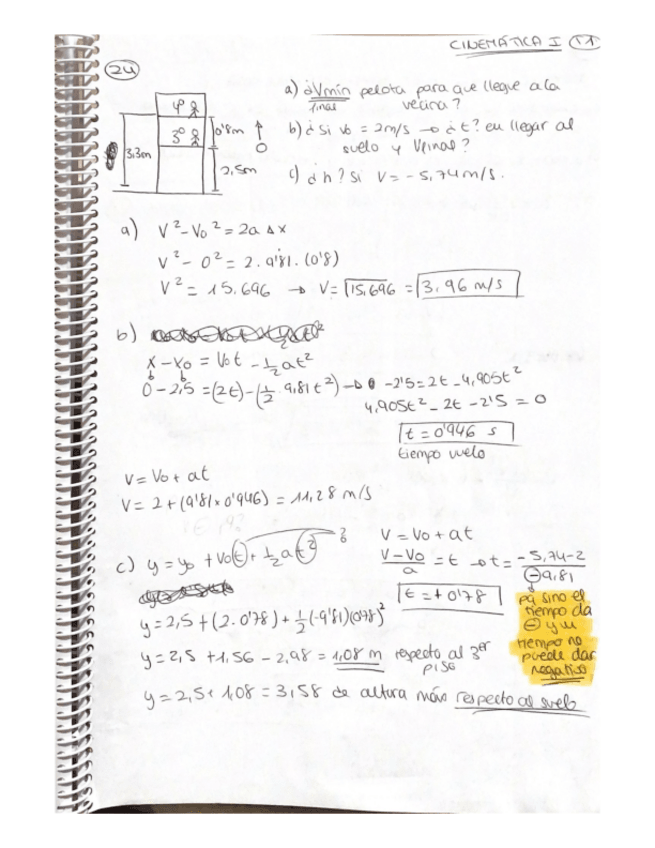 CINEMÁTICA I 11
24
a) ¿Vmin pelota para que llegue a la
final vecina?
4º
3º
0'8m
3.3m
2,5m
b) ¿si v0 = 2m/s → ¿t? en llegar al
suelo y Vfinal?
c) ¿h? si V = -5,74 m/s.
a) V² - V0² = 2a Δx
V² - 0² = 2 . 9'81 . (0'8)
V² = 15.696 → V = √15,696 = 3,96 m/s
b)
x - x0 = V0t - 1/2 at²
0 - 2,5 = (2t) - (1/2 9,81t²) → -2'5 = 2t - 4,905t²
4,905t² - 2t - 2'5 = 0
t = 0'946 s
tiempo vuelo
V = V0 + at
V = 2 + (9'81 x 0'946) = 11,28 m/s
c) y = y0 + V0t + 1/2 a t² ?
V = V0 + at
V-V0/a = t → t = -5,74-2/-9,81
t = +0'78
pq sino el
tiempo da
⊖ y un
tiempo no
puede dar
negativo
y = 2,5 + (2 . 0'78) + 1/2 (-9'81)(0'78)²
y = 2,5 + 1,56 - 2,98 = 1,08 m respecto al 3er
piso
y = 2,5 + 1,08 = 3,58 de altura máx respecto al suelo